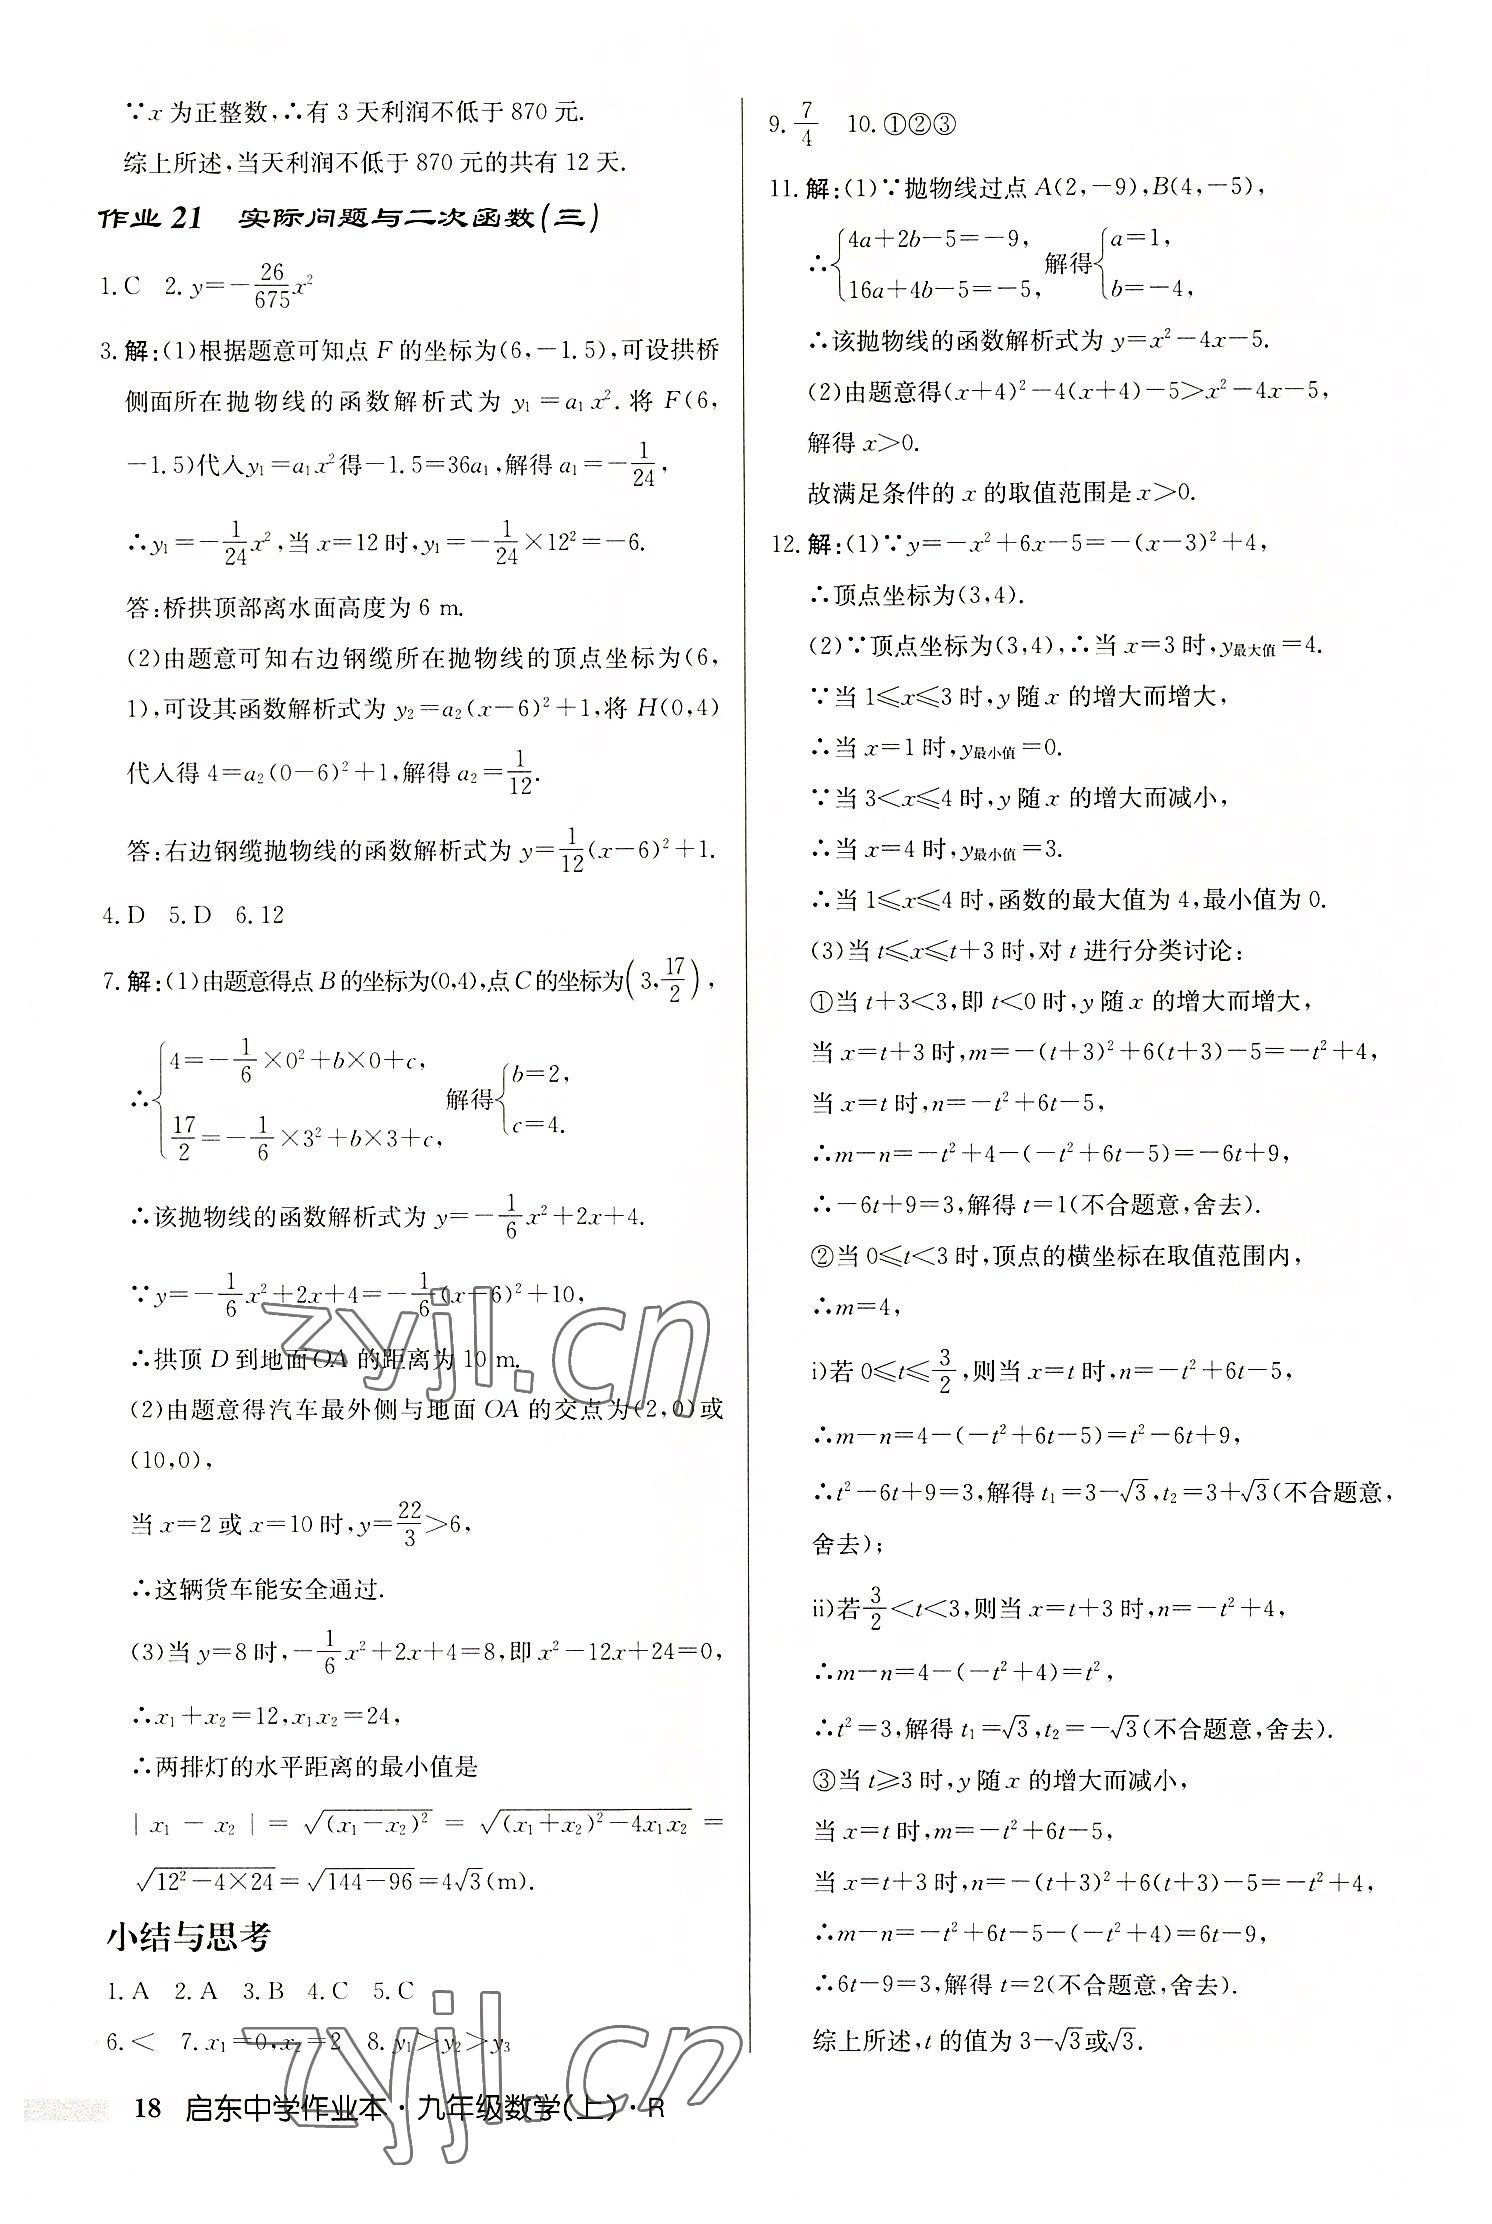 ∵x 为正整数,∴有 3 天利润不低于 870 元.
综上所述,当天利润不低于 870 元的共有 12 天.
作业 21 实际问题与二次函数(三)
1. C 2. y=-26/675 x²
3. 解:(1)根据题意可知点 F 的坐标为(6,-1.5),可设拱桥
侧面所在抛物线的函数解析式为 y₁=a₁x². 将 F(6,
-1.5)代入y₁=a₁x²得-1.5=36a₁,解得 a₁=-1/24,
∴y₁=-1/24 x²,当 x=12 时,y₁=-1/24×12²=-6.
答:桥拱顶部离水面高度为 6 m.
(2)由题意可知右边钢缆所在抛物线的顶点坐标为(6,
1),可设其函数解析式为 y₂=a₂(x-6)²+1,将 H(0,4)
代入得 4=a₂(0-6)²+1,解得 a₂=1/12.
答:右边钢缆抛物线的函数解析式为 y=1/12(x-6)²+1.
4. D 5. D 6. 12
7. 解:(1)由题意得点 B 的坐标为(0,4),点 C 的坐标为(3,17/2),
∴{4=-1/6×0²+b×0+c, 17/2=-1/6×3²+b×3+c, 解得{b=2, c=4.
∴该抛物线的函数解析式为 y=-1/6 x²+2x+4.
∵y=-1/6 x²+2x+4=-1/6(x-6)²+10,
∴拱顶 D 到地面 OA 的距离为 10 m.
(2)由题意得汽车最外侧与地面 OA 的交点为(2,0)或
(10,0),
当 x=2 或 x=10 时,y=22/3>6,
∴这辆货车能安全通过.
(3)当 y=8 时,-1/6 x²+2x+4=8,即 x²-12x+24=0,
∴x₁+x₂=12,x₁x₂=24,
∴两排灯的水平距离的最小值是
|x₁-x₂|=√((x₁-x₂)²)=√((x₁+x₂)²-4x₁x₂)=
√(12²-4×24)=√(144-96)=4√3(m).
小结与思考
1. A 2. A 3. B 4. C 5. C
6. < 7. x₁=0,x₂=2 8. y₁>y₂>y₃
9. 7/4 10. ①②③
11. 解:(1)∵抛物线过点 A(2,-9),B(4,-5),
∴{4a+2b-5=-9, 16a+4b-5=-5, 解得{a=1, b=-4,
∴该抛物线的函数解析式为 y=x²-4x-5.
(2)由题意得(x+4)²-4(x+4)-5>x²-4x-5,
解得 x>0.
故满足条件的 x 的取值范围是 x>0.
12. 解:(1)∵y=-x²+6x-5=-(x-3)²+4,
∴顶点坐标为(3,4).
(2)∵顶点坐标为(3,4),∴当 x=3 时,y最大值=4.
∵当 1≤x≤3 时,y 随 x 的增大而增大,
∴当 x=1 时,y最小值=0.
∵当 3<x≤4 时,y 随 x 的增大而减小,
∴当 x=4 时,y最小值=3.
∴当 1≤x≤4 时,函数的最大值为 4,最小值为 0.
(3)当 t≤x≤t+3 时,对 t 进行分类讨论:
①当 t+3<3,即 t<0 时,y 随 x 的增大而增大,
当 x=t+3 时,m=-(t+3)²+6(t+3)-5=-t²+4,
当 x=t 时,n=-t²+6t-5,
∴m-n=-t²+4-(-t²+6t-5)=-6t+9,
∴-6t+9=3,解得 t=1(不合题意,舍去).
②当 0≤t<3 时,顶点的横坐标在取值范围内,
∴m=4,
i)若 0≤t≤3/2,则当 x=t 时,n=-t²+6t-5,
∴m-n=4-(-t²+6t-5)=t²-6t+9,
∴t²-6t+9=3,解得 t₁=3-√3,t₂=3+√3(不合题意,
舍去);
ii)若3/2<t<3,则当 x=t+3 时,n=-t²+4,
∴m-n=4-(-t²+4)=t²,
∴t²=3,解得 t₁=√3,t₂=-√3(不合题意,舍去).
③当 t≥3 时,y 随 x 的增大而减小,
当 x=t 时,m=-t²+6t-5,
当 x=t+3 时,n=-(t+3)²+6(t+3)-5=-t²+4,
∴m-n=-t²+6t-5-(-t²+4)=6t-9,
∴6t-9=3,解得 t=2(不合题意,舍去).
综上所述,t 的值为 3-√3或√3.
18 启东中学作业本·九年级数学(上)·R
zyjl.cn
zyjl.cn